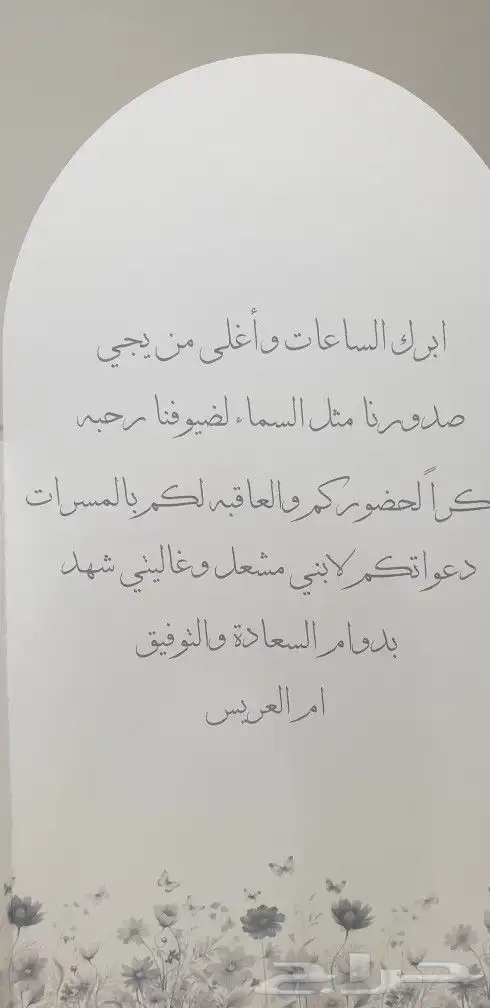 ابرك الساعات وأغلى من يجي
صدورنا مثل السماء لضيوفنا رحبه
كراً لحضوركم والعاقبه لكم بالمسرات
دعواتكم لابني مشعل وغاليتي شهد
بدوام السعادة والتوفيق
ام العريس
حراج